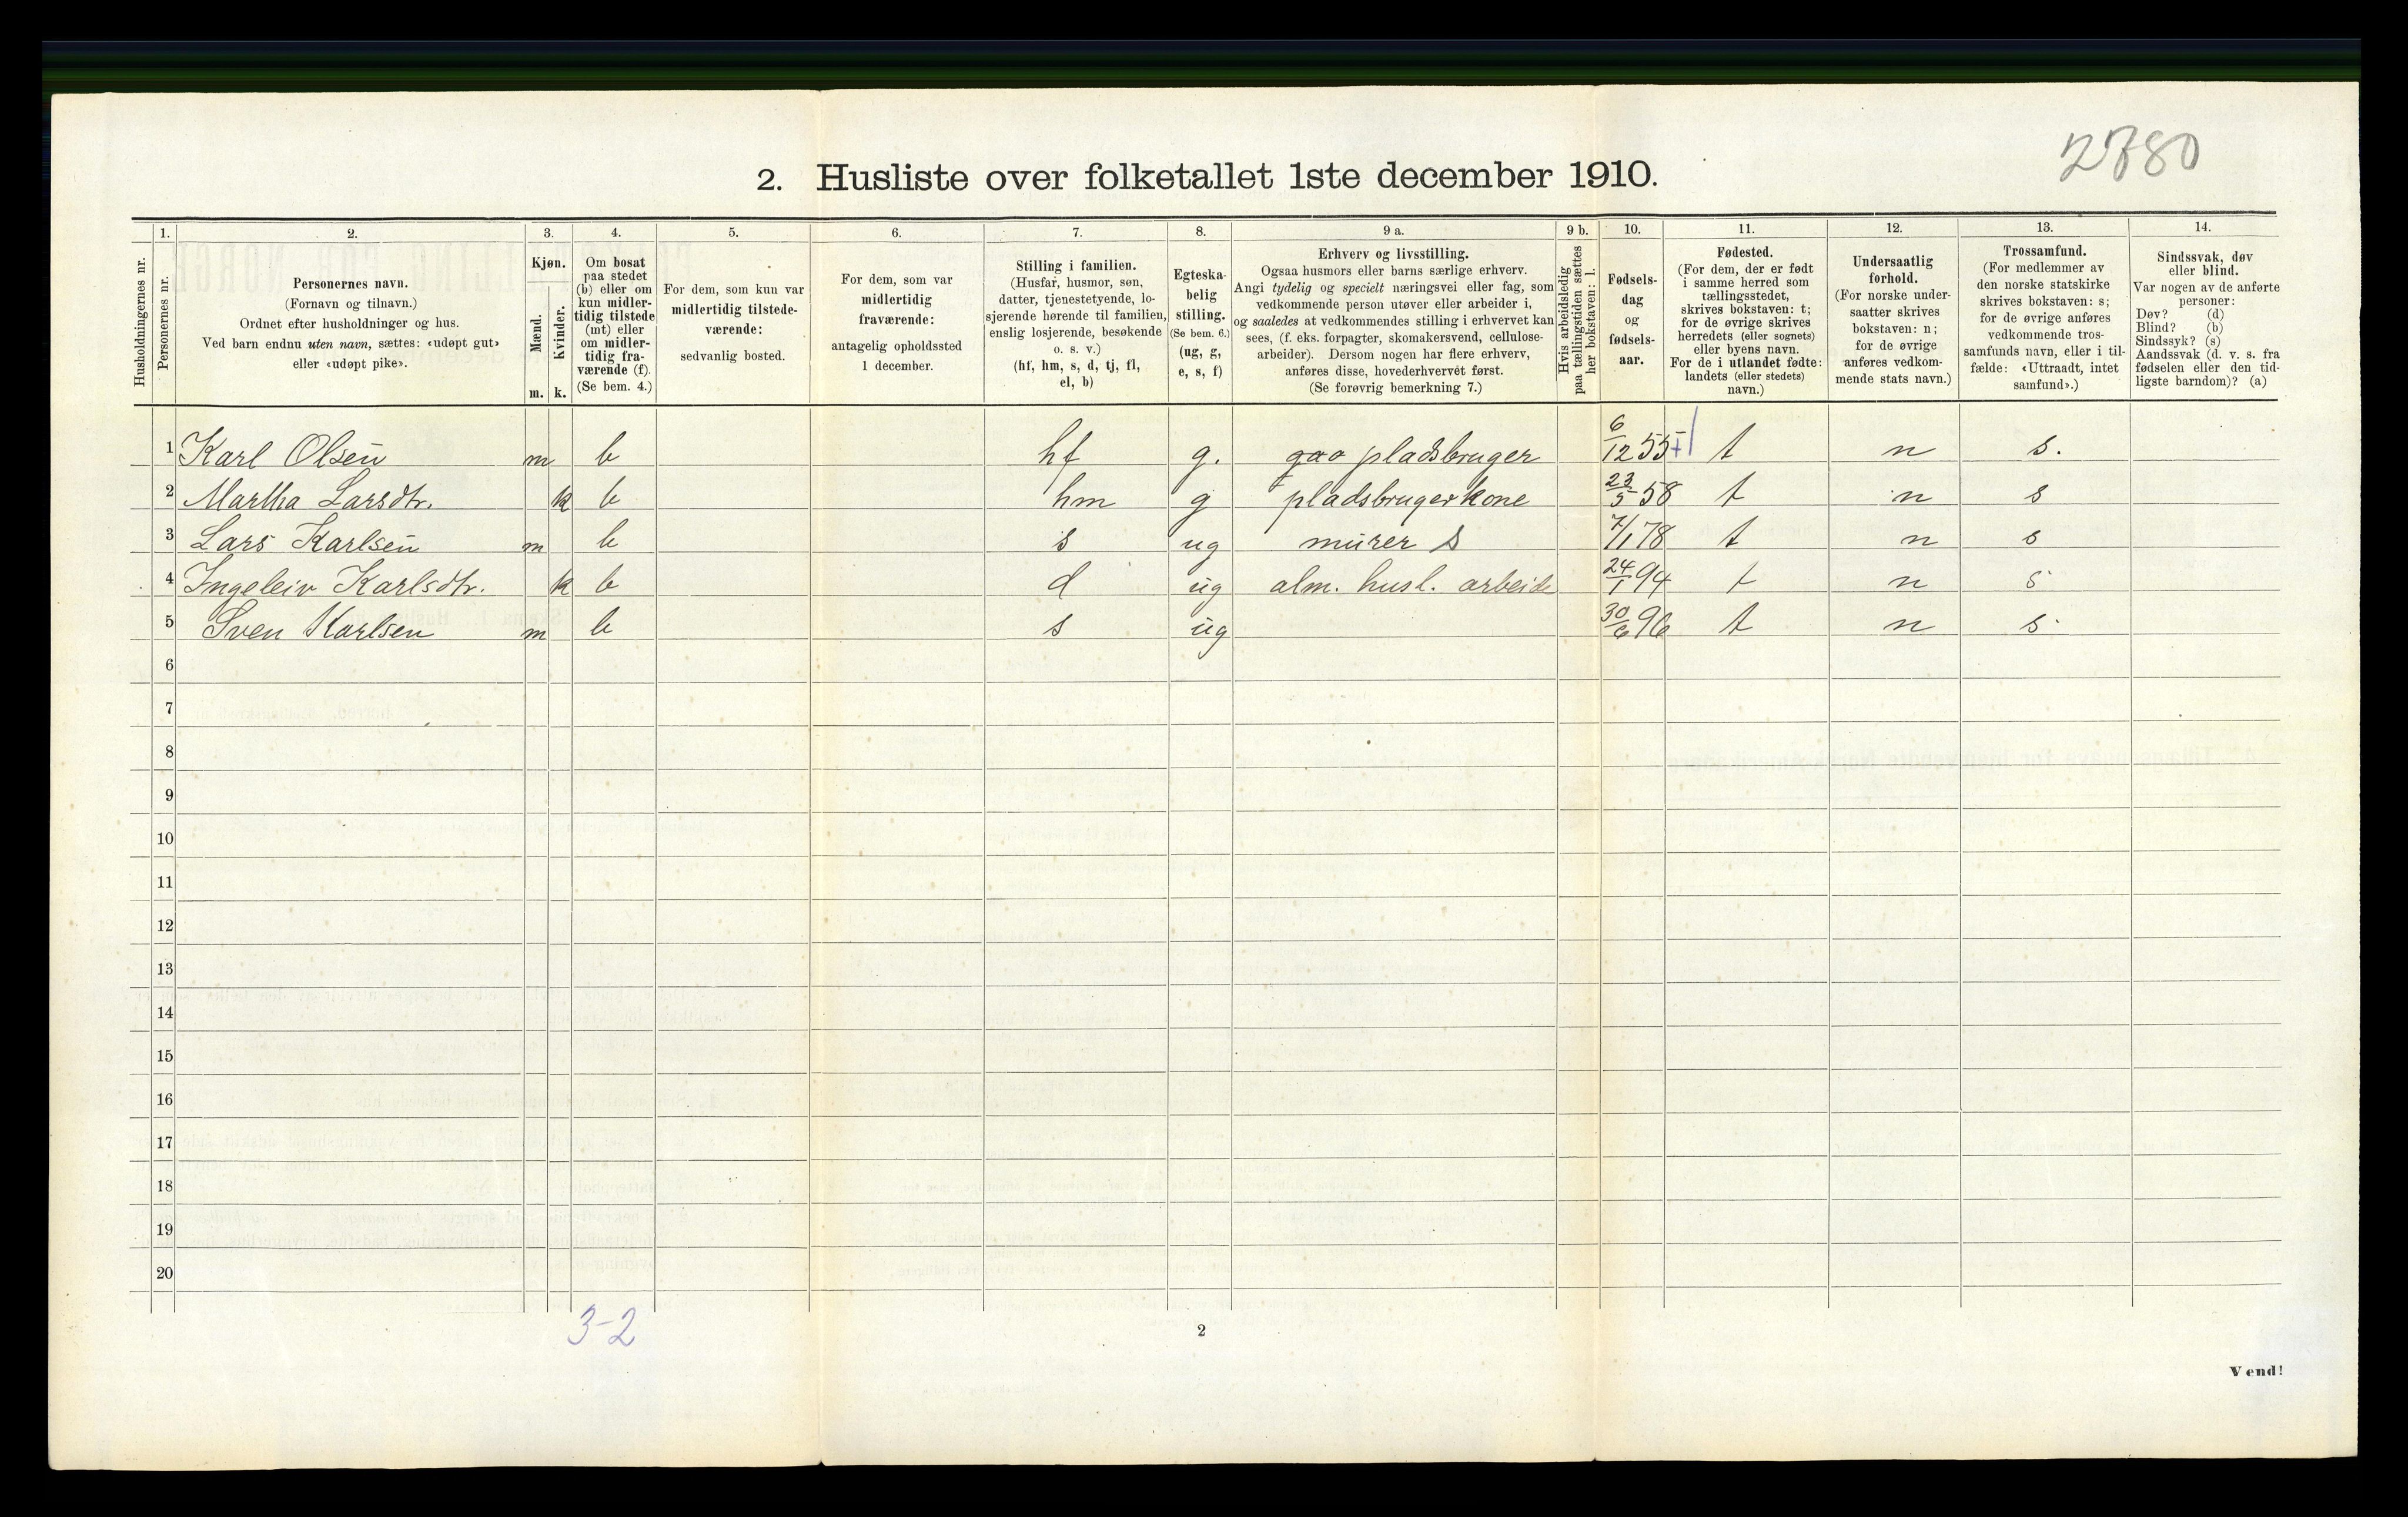 2780
2. Husliste over folketallet 1ste december 1910.
Husholdningernes nr.
1. Personernes nr.
2. Personernes navn.
(Fornavn og tilnavn.)
Ordnet efter husholdninger og hus.
Ved barn endnu uten navn, sættes: «udøpt gut»
eller «udøpt pike».
3. Kjøn.
Mænd. m.
Kvinder. k.
4. Om bosat
paa stedet
(b) eller om
kun midler-
tidig tilstede
(mt) eller
om midler-
tidig fra-
værende (f).
(Se bem. 4.)
5. For dem, som kun var
midlertidig tilstede-
værende:
sedvanlig bosted.
6. For dem, som var
midlertidig
fraværende:
antagelig opholdssted
1 december.
7. Stilling i familien.
(Husfar, husmor, søn,
datter, tjenestetyende, lo-
sjerende hørende til familien,
enslig losjerende, besøkende
o. s. v.)
(hf, hm, s, d, tj, fl,
el, b)
8. Egteska-
belig
stilling.
(Se bem. 6.)
(ug, g,
e, s, f)
9 a. Erhverv og livsstilling.
Ogsaa husmors eller barns særlige erhverv.
Angi tydelig og specielt næringsvei eller fag, som
vedkommende person utøver eller arbeider i,
og saaledes at vedkommendes stilling i erhvervet kan
sees, (f. eks. forpagter, skomakersvend, cellulose-
arbeider). Dersom nogen har flere erhverv,
anføres disse, hovederhvervet først.
(Se forøvrig bemerkning 7.)
9 b. Hvis arbeidsledig
paa tællingstiden sættes
her bokstaven: l.
10. Fødsels-
dag
og
fødsels-
aar.
11. Fødested.
(For dem, der er født
i samme herred som
tællingsstedet,
skrives bokstaven: t;
for de øvrige skrives
herredets (eller sognets)
eller byens navn.
For de i utlandet fødte:
landets (eller stedets)
navn.)
12. Undersaatlig
forhold.
(For norske under-
saatter skrives
bokstaven: n;
for de øvrige
anføres vedkom-
mende stats navn.)
13. Trossamfund.
(For medlemmer av
den norske statskirke
skrives bokstaven: s;
for de øvrige anføres
vedkommende tros-
samfunds navn, eller i til-
fælde: «Uttraadt, intet
samfund».)
14. Sindssvak, døv
eller blind.
Var nogen av de anførte
personer:
Døv? (d)
Blind? (b)
Sindssyk? (s)
Aandssvak (d. v. s. fra
fødselen eller den tid-
ligste barndom)? (a)
1 Karl Olsen m b hf g. pladsbruger 6/12 55 t n s.
2 Martha Larsdtr. k b hm g pladsbrugerkone 23/5 58 t n s
3 Lars Karlsen m b s ug murer s 7/1 78 t n s
4 Ingeleiv Karlsdtr. k b d ug alm. husl. arbeide 24/1 94 t n s
5 Sven Karlsen m b s ug 30/6 96 t n s
6
7
8
9
10
11
12
13
14
15
16
17
18
19
20
3-2
2
Vend!